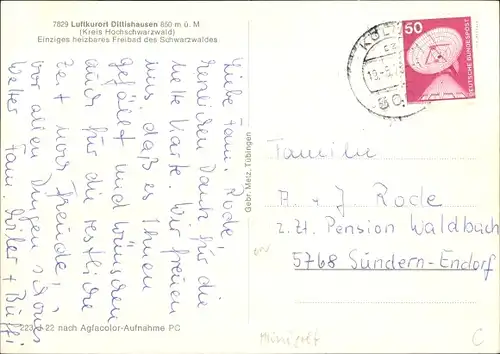 7829 Luftkurort Dittishausen 850 m ü. M
(Kreis Hochschwarzwald)
Einziges heizbares Freibad des Schwarzwaldes
Liebe Fam. Rode,
herzlichen Dank für die
nette Karte. Wir freuen
uns daß es Ihnen
gefällt und wünschen
auch für die restliche
Zeit noch Freude,
vor allen Dingen schönes
Wetter Fam.
223/J 22 nach Agfacolor-Aufnahme PC
Gebr. Metz, Tübingen
KÖLN
50
DEUTSCHE BUNDESPOST
Familie
A. + J. Rode
z. Zt. Pension Waldbach
5768 Sundern-Endorf